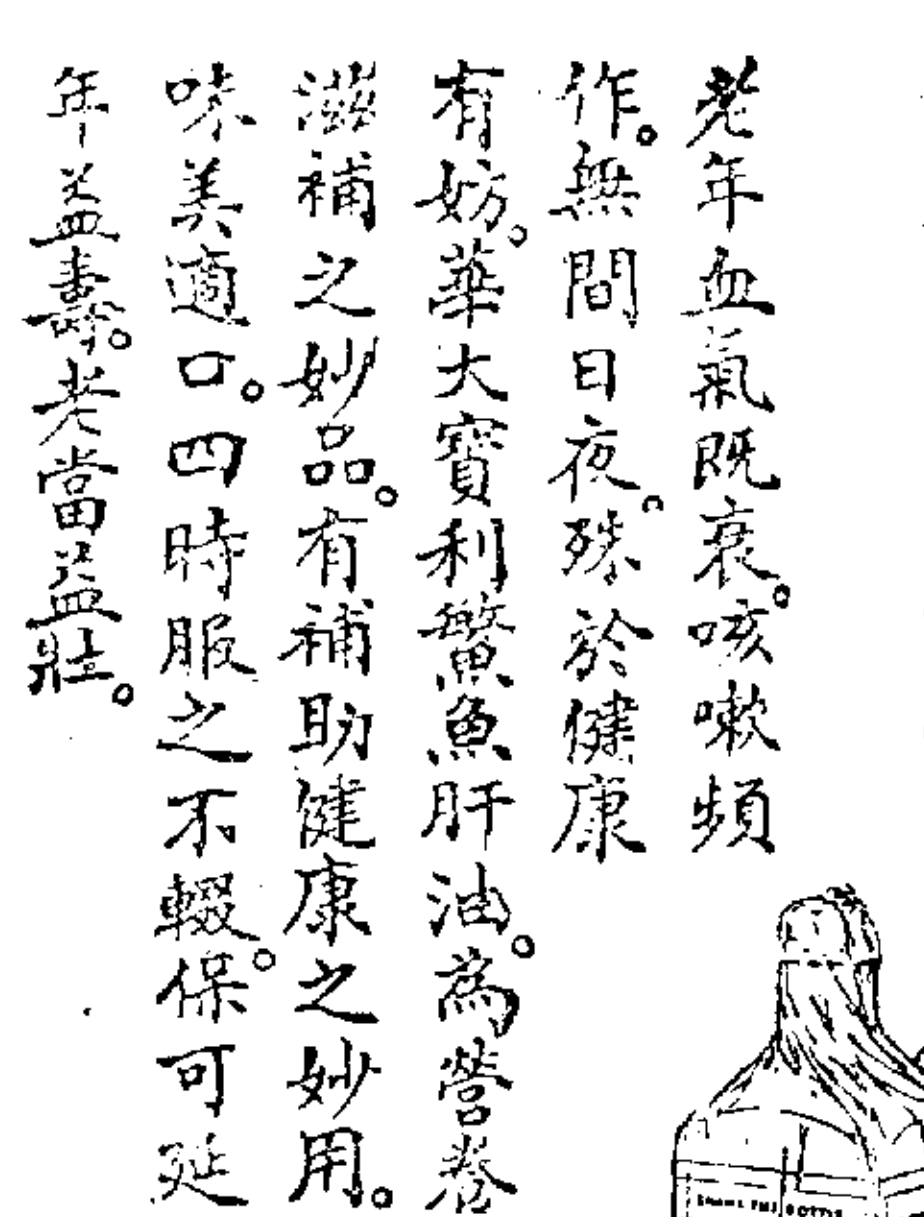 老年血氣既衰。咳嗽頻
作。無間日夜。殊於健康
有妨。華大寶利鰵魚肝油。為營養
滋補之妙品。有補助健康之妙用。
味美適口。四時服之不輟。保可延
年益壽。老當益壯。
SHAKE THE BOTTLE